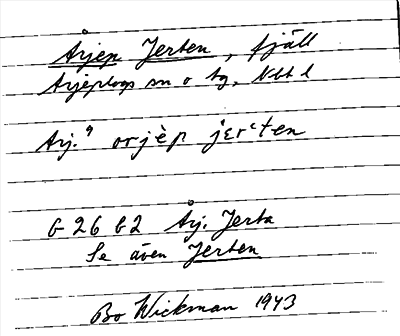 Årjep Jerten, fjäll
Arjeplogs sn o tg, Nbt l
Arj. orjèp jerten
G 26 b2 Årj. Jerta
Se även Jerten
Bo Wickman 1943